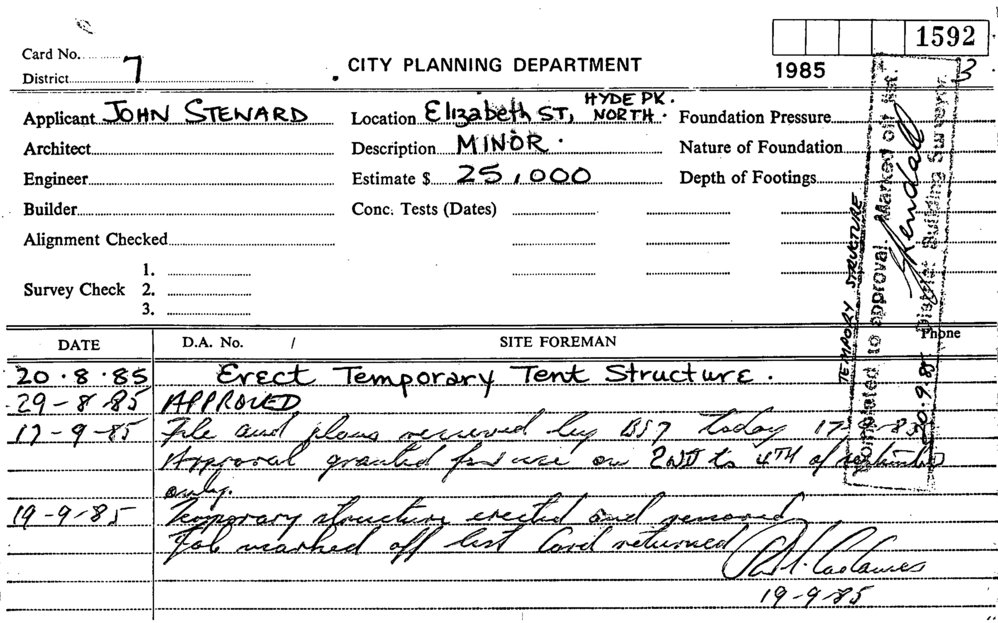 1592
Card No.
District 7
CITY PLANNING DEPARTMENT
1985
3
Applicant JOHN STEWARD
Location Elizabeth ST, HYDE PK. NORTH.
Foundation Pressure
Architect
Description MINOR.
Nature of Foundation
Engineer
Estimate $ 25,000
Depth of Footings
Builder
Conc. Tests (Dates)
Alignment Checked
Survey Check
1.
2.
3.
TEMPORY STRUCTURE
Completed to approval. Marked off list.
20.9.85 District Building Surveyor.
DATE
D.A. No. /
SITE FOREMAN
Phone
20.8.85 Erect Temporary Tent Structure.
29-8-85 APPROVED
17-9-85 File and plans received by BS7 today 17-9-85
Approval granted for use on 2ND to 4TH of
only.
19-9-85 Temporary structure erected and removed
Job marked off list Card returned
19-9-85